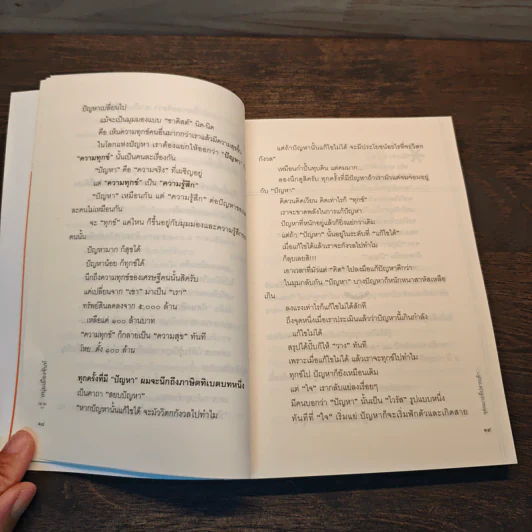 ปัญหาเปลี่ยนไป
แม้จะเป็นมุมมองแบบ "ซาดิสต์" นิด-นิด
คือ เห็นความทุกข์คนอื่นมากกว่าเราแล้วมีความสุขขึ้น
ในโลกแห่งปัญหา เราต้องแยกให้ออกว่า "ปัญหา"
"ความทุกข์" นั้นเป็นคนละเรื่องกัน
"ปัญหา" คือ "ความจริง" ที่เผชิญอยู่
แต่ "ความทุกข์" เป็น "ความรู้สึก"
"ปัญหา" เหมือนกัน แต่ "ความรู้สึก" ต่อปัญหาของ
ละคนไม่เหมือนกัน
จะ "ทุกข์" แค่ไหน ก็ขึ้นอยู่กับมุมมองและความรู้สึก
คนนั้น
ปัญหามาก ก็สุขได้
ปัญหาน้อย ก็ทุกข์ได้
นึกถึงความทุกข์ของเศรษฐีคนนั้นสิครับ
แค่เปลี่ยนจาก "เขา" มาเป็น "เรา"
ทรัพย์สินลดลงจาก ๕,๐๐๐ ล้าน
เหลือแค่ ๑๐๐ ล้านบาท
"ความทุกข์" ก็กลายเป็น "ความสุข" ทันที
โหย..ตั้ง ๑๐๐ ล้าน
ทุกครั้งที่มี "ปัญหา" ผมจะนึกถึงภาษิตทิเบตบทหนึ่ง
เป็นคาถา "สยบปัญหา"
"หากปัญหานั้นแก้ไขได้ จะมัววิตกกังวลไปทำไม
หนุ่มเมืองจันท์
แต่ถ้าปัญหานั้นแก้ไขไม่ได้ จะมีประโยชน์อะไรที่จะวิตก
กังวล"
เหมือนกำปั้นทุบดิน แต่คมมาก
ลองนึกดูสิครับ ทุกครั้งที่มีปัญหาถ้าเรามัวแต่จมจ่อมอยู่
กับ "ปัญหา"
คิดวนคิดเวียน คิดเท่าไรก็ "ทุกข์"
เราจะขาดพลังในการแก้ปัญหา
ปัญหาที่หนักอยู่แล้วก็ยิ่งแย่กว่าเดิม
แต่ถ้า "ปัญหา" นั้นอยู่ในระดับที่ "แก้ไขได้"
เมื่อแก้ไขได้แล้วเราจะกังวลไปทำไม
ก็ลุยเลยสิ!!!
เอาเวลาที่มัวแต่ "คิด" ไปลงมือแก้ปัญหาดีกว่า
ในมุมกลับกัน "ปัญหา" บางปัญหาก็หนักหนาสาหัสเหลือ
เกิน
ลงแรงเท่าไรก็แก้ไขไม่ได้สักที
ถึงจุดหนึ่งเมื่อเราประเมินแล้วว่าปัญหานี้เกินกำลัง
แก้ไขไม่ได้
สรุปได้ปั๊บก็ให้ "วาง" ทันที
เพราะเมื่อแก้ไขไม่ได้ แล้วเราจะทุกข์ไปทำไม
ทุกข์ไป ปัญหาก็ยังเหมือนเดิม
แต่ "ใจ" เรากลับแย่ลงเรื่อยๆ
มีคนบอกว่า "ปัญหา" นั้นเป็น "ไวรัส" รูปแบบหนึ่ง
ทันทีที่ "ใจ" เริ่มแย่ ปัญหาก็จะเริ่มฟักตัวและเกิดสาย